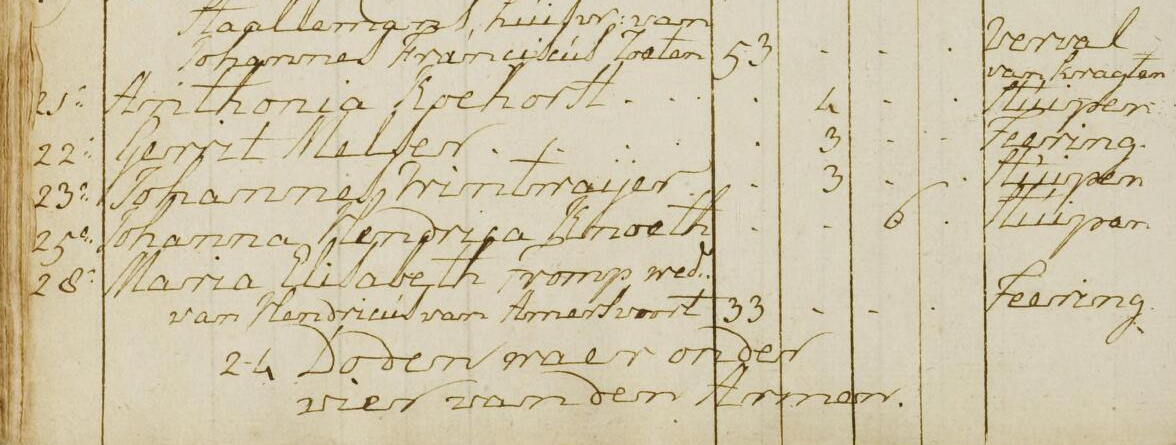 Staallemans huijsvr: van
Johannes Franciscus Zoeten 53 - - - Verval
van kragten
21e Anthonia Roehorst . . . . 4 - . Stuijpen
22e Gerrit Melser . . . . 3 - - Teering.
23e Johannes Wintmeijer . 3 - . Stuijpen
25e Johanna Hendrica Knoeth . - 6 . Stuijpen
28e Maria Elisabeth Tromp wed:
van Hendricus van Amersvoort 33 - - . Teering.
24 Doden waer onder
vier van den Armen.